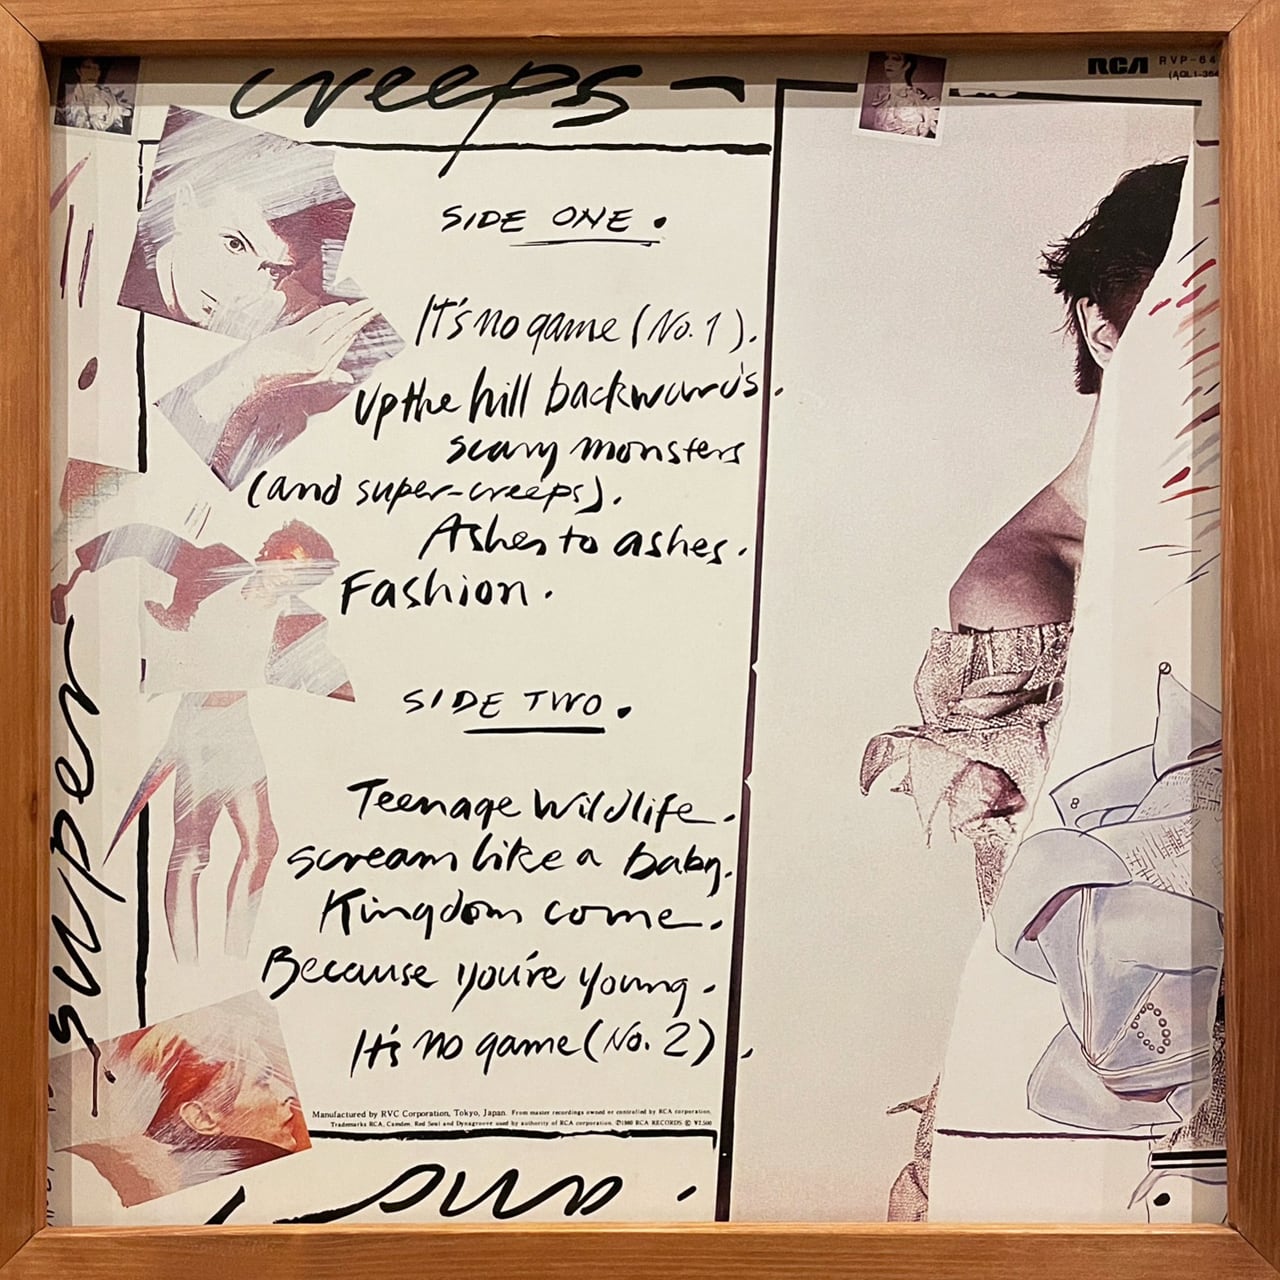 creeps -
RCA RVP-64
SIDE ONE.
It's no game (No. 1).
Up the hill backwards.
scary monsters
(and super-creeps).
Ashes to ashes.
Fashion.
SIDE TWO.
Teenage Wildlife.
scream like a baby.
Kingdom come.
Because you're young.
It's no game (No. 2).
super
Manufactured by RVC Corporation, Tokyo, Japan. From master recordings owned or controlled by RCA corporation.
Trademarks RCA, Camden, Red Seal and Dynagroove used by authority of RCA corporation. ©1980 RCA RECORDS Ⓒ ¥2,500